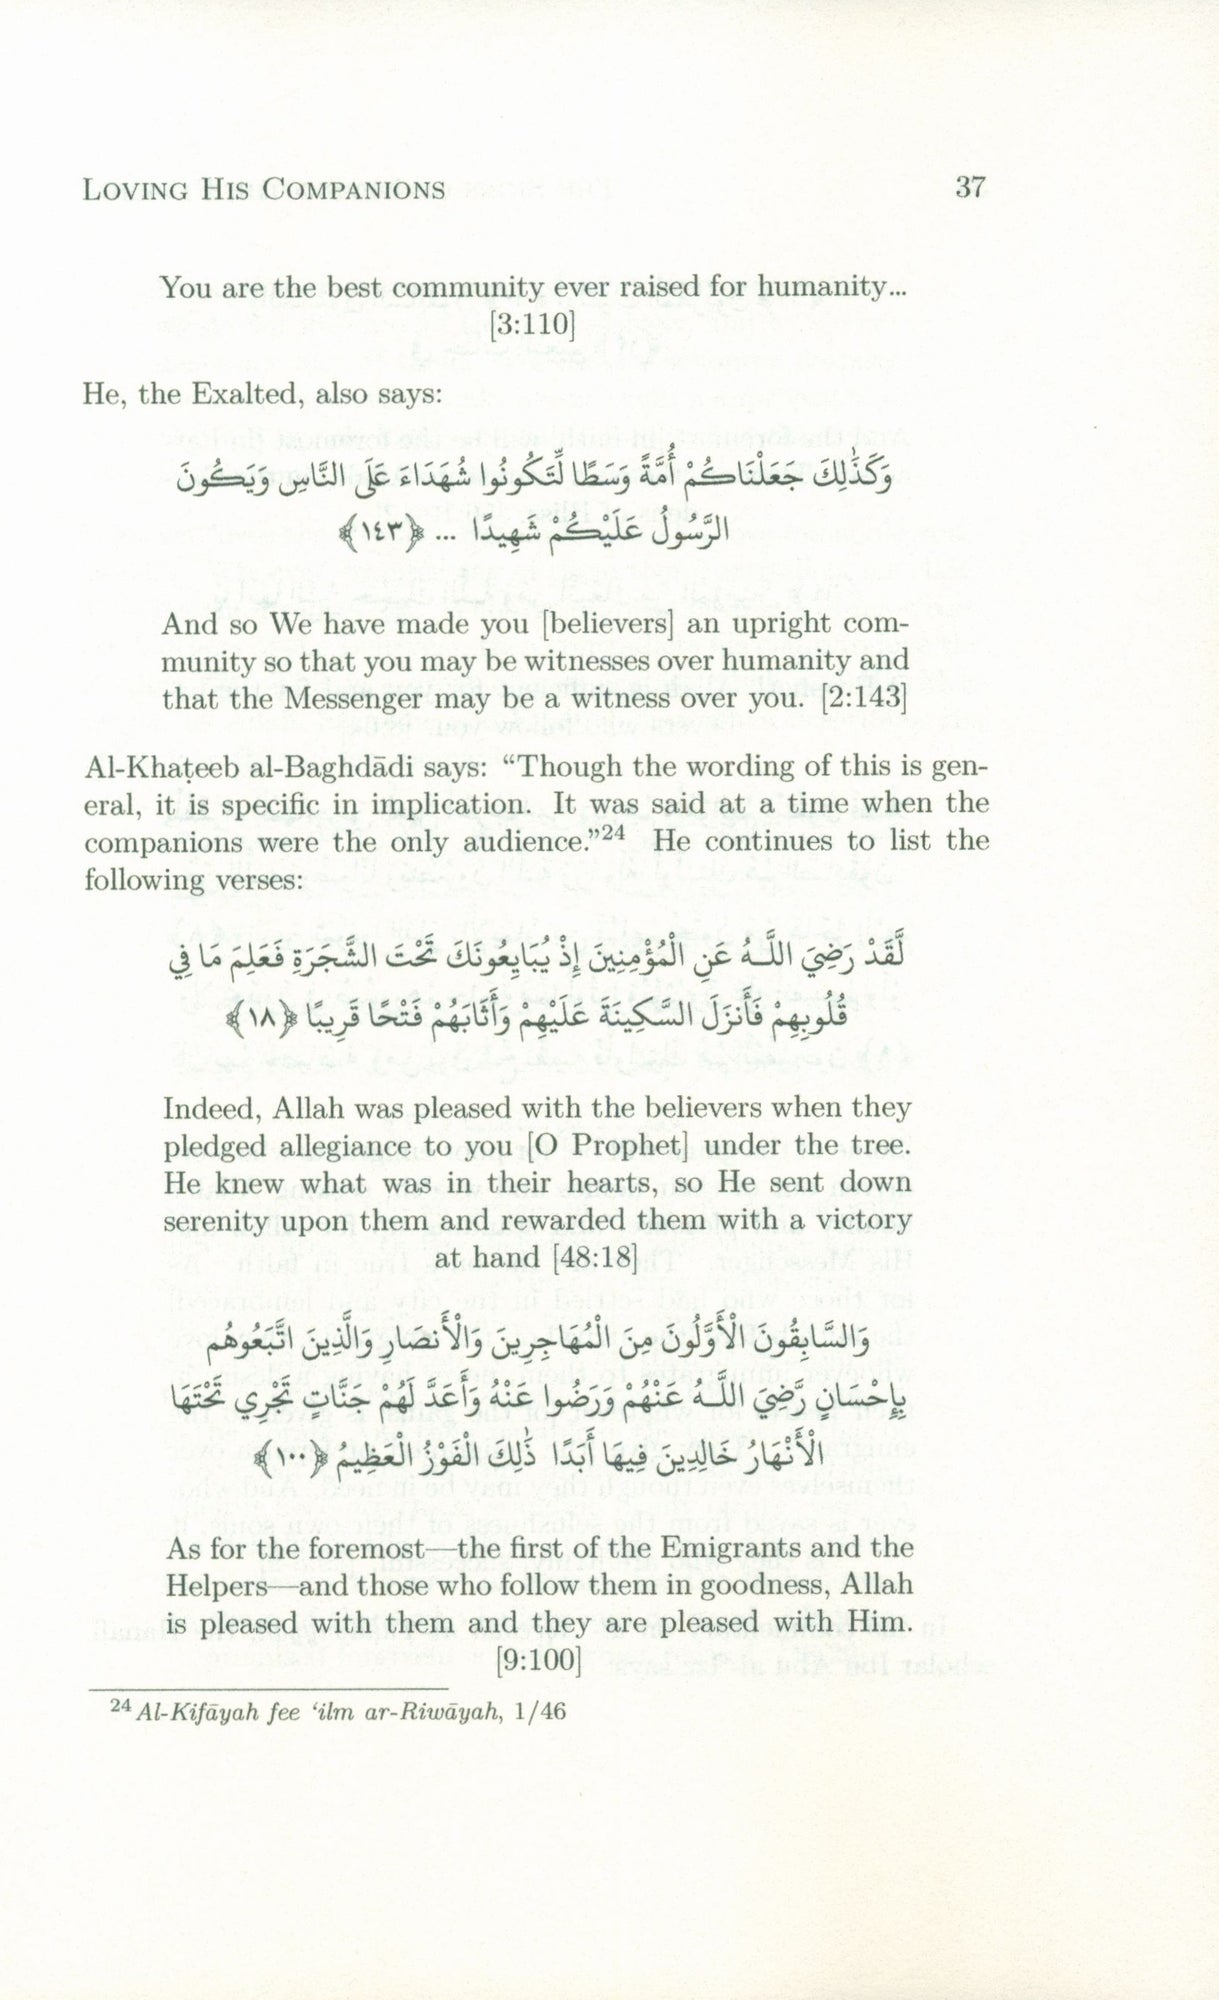 LOVING HIS COMPANIONS 37
You are the best community ever raised for humanity...
[3:110]
He, the Exalted, also says:
وَكَذَٰلِكَ جَعَلْنَاكُمْ أُمَّةً وَسَطًا لِّتَكُونُوا شُهَدَاءَ عَلَى النَّاسِ وَيَكُونَ
الرَّسُولُ عَلَيْكُمْ شَهِيدًا ... ﴿١٤٣﴾
And so We have made you [believers] an upright com-
munity so that you may be witnesses over humanity and
that the Messenger may be a witness over you. [2:143]
Al-Khaṭeeb al-Baghdādi says: “Though the wording of this is gen-
eral, it is specific in implication. It was said at a time when the
companions were the only audience.”24 He continues to list the
following verses:
لَّقَدْ رَضِيَ اللَّـهُ عَنِ الْمُؤْمِنِينَ إِذْ يُبَايِعُونَكَ تَحْتَ الشَّجَرَةِ فَعَلِمَ مَا فِي
قُلُوبِهِمْ فَأَنزَلَ السَّكِينَةَ عَلَيْهِمْ وَأَثَابَهُمْ فَتْحًا قَرِيبًا ﴿١٨﴾
Indeed, Allah was pleased with the believers when they
pledged allegiance to you [O Prophet] under the tree.
He knew what was in their hearts, so He sent down
serenity upon them and rewarded them with a victory
at hand [48:18]
وَالسَّابِقُونَ الْأَوَّلُونَ مِنَ الْمُهَاجِرِينَ وَالْأَنصَارِ وَالَّذِينَ اتَّبَعُوهُم
بِإِحْسَانٍ رَّضِيَ اللَّـهُ عَنْهُمْ وَرَضُوا عَنْهُ وَأَعَدَّ لَهُمْ جَنَّاتٍ تَجْرِي تَحْتَهَا
الْأَنْهَارُ خَالِدِينَ فِيهَا أَبَدًا ذَٰلِكَ الْفَوْزُ الْعَظِيمُ ﴿١٠٠﴾
As for the foremost—the first of the Emigrants and the
Helpers—and those who follow them in goodness, Allah
is pleased with them and they are pleased with Him.
[9:100]
24 Al-Kifāyah fee ‘ilm ar-Riwāyah, 1/46